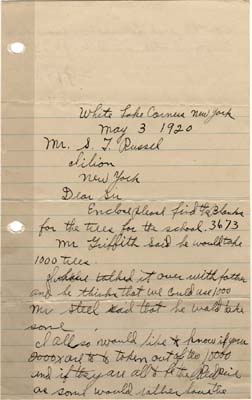 White Lake Corners New York
May 3 1920
Mr. S. T. Russel
Ilion
New York
Dear Sir
Enclose please find the blanks
for the trees for the school. 3673
Mr Griffith said he would take
1000 trees.
I have talked it over with father
and he thinks that we could use 1000
Mr Steel said that he would take
some
I all so would like to know if you
are to be taken out of the
and if they are all to be the Red pine
as some would rather have the